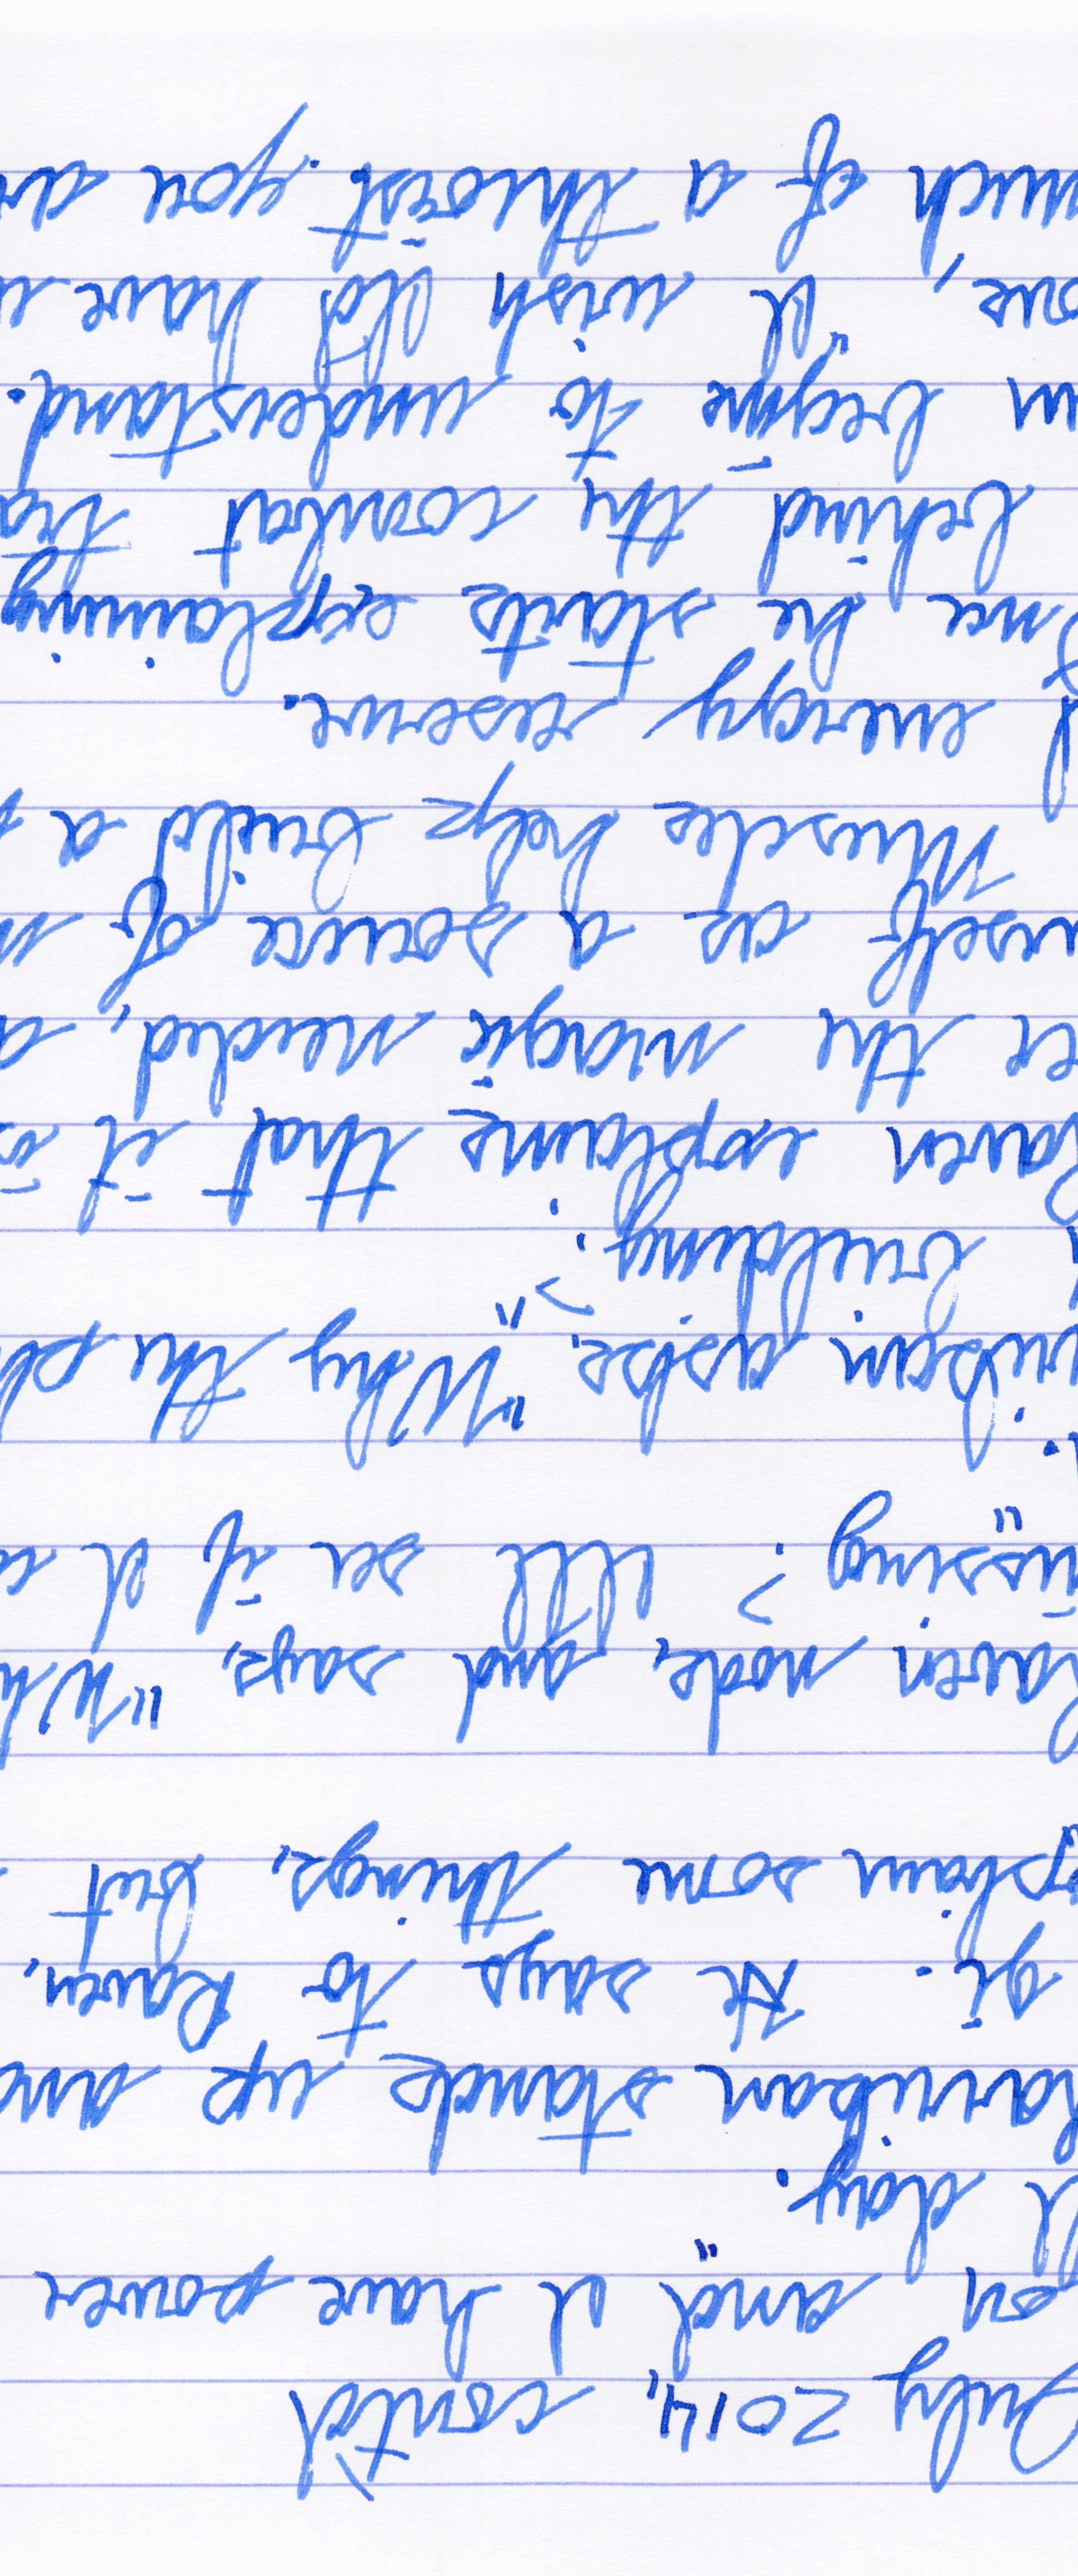 July 2014, cont'd
on and" I have power
ll day.
stands up and
gi. He says to Raven,
xplain some things, but
Raven nods, and says, "Wh
issing"? I'll see if I c
asks. "Why the ph
building?"
Raven explains that it is
er the magic needed, a
rself as a source of m
Muscles help build a p
l energy reserve.
Once he starts explaining
behind the combat tra
an begins to understand.
one, "I wish I'd have
much of a theorist you ar